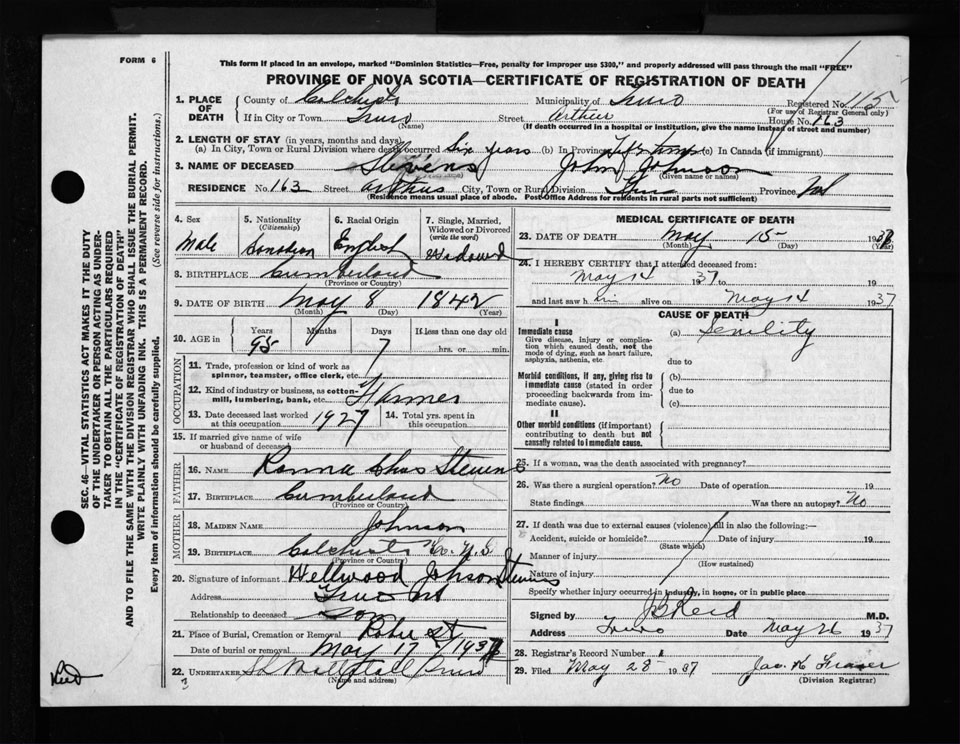 FORM 6
This form if placed in an envelope, marked "Dominion Statistics—Free, penalty for improper use $300," and properly addressed will pass through the mail "FREE"
PROVINCE OF NOVA SCOTIA—CERTIFICATE OF REGISTRATION OF DEATH
SEC. 46—VITAL STATISTICS ACT MAKES IT THE DUTY
OF THE UNDERTAKER OR PERSON ACTING AS UNDER-
TAKER TO OBTAIN ALL THE PARTICULARS REQUIRED
IN THE "CERTIFICATE OF REGISTRATION OF DEATH"
AND TO FILE THE SAME WITH THE DIVISION REGISTRAR WHO SHALL ISSUE THE BURIAL PERMIT.
WRITE PLAINLY WITH UNFADING INK. THIS IS A PERMANENT RECORD.
Every item of information should be carefully supplied. (See reverse side for instructions.)
1. PLACE OF DEATH County of Colchester Municipality of Truro Registered No. 115
(For use of Registrar General only)
If in City or Town Truro Street Arthur House No. 163
(Name) (If death occurred in a hospital or institution, give the name instead of street and number)
2. LENGTH OF STAY (in years, months and days)
(a) In City, Town or Rural Division where death occurred Six years (b) In Province Life time (c) In Canada (if immigrant)
3. NAME OF DECEASED Stevens John Johnson
(Given name or names)
RESIDENCE No. 163 Street Arthur City, Town or Rural Division Truro Province
(Residence means usual place of abode. Post-Office Address for residents in rural parts not sufficient)
4. Sex Male
5. Nationality (Citizenship) Canadian
6. Racial Origin English
7. Single, Married, Widowed or Divorced (write the word) Widowed
8. BIRTHPLACE Cumberland
(Province or Country)
9. DATE OF BIRTH May 8 1842
(Month) (Day) (Year)
10. AGE in Years 95 Months Days 7 If less than one day old
hrs. or min.
OCCUPATION
11. Trade, profession or kind of work as
spinner, teamster, office clerk, etc.
12. Kind of industry or business, as cotton-
mill, lumbering, bank, etc. Farmer
13. Date deceased last worked at this occupation 1927
14. Total yrs. spent in this occupation
15. If married give name of wife
or husband of deceased
FATHER
16. NAME Chas Stevens
17. BIRTHPLACE Cumberland
(Province or Country)
MOTHER
18. MAIDEN NAME Johnson
19. BIRTHPLACE Colchester Co. N.S
(Province or Country)
20. Signature of informant Wellwood Johnson Stevens
Address Truro
Relationship to deceased Son
21. Place of Burial, Cremation or Removal Robie St
Date of burial or removal May 17 1937
22. UNDERTAKER Truro
(Name and address)
3
MEDICAL CERTIFICATE OF DEATH
23. DATE OF DEATH May 15 1937
(Month) (Day)
24. I HEREBY CERTIFY that I attended deceased from:
May 14 1937 to 19
and last saw him alive on May 14 1937
CAUSE OF DEATH
I
Immediate cause (a) Senility
Give disease, injury or complica-
tion which caused death, not the
mode of dying, such as heart failure,
asphyxia, asthenia, etc.
due to
Morbid conditions, if any, giving rise to (b)
immediate cause (stated in order
proceeding backwards from im-
mediate cause).
due to
(c)
II
Other morbid conditions (if important)
contributing to death but not
causally related to immediate cause.
25. If a woman, was the death associated with pregnancy?
26. Was there a surgical operation? No Date of operation 19
State findings Was there an autopsy? No
27. If death was due to external causes (violence) fill in also the following:—
Accident, suicide or homicide? Date of injury 19
(State which)
Manner of injury
(How sustained)
Nature of injury
Specify whether injury occurred in industry, in home, or in public place
Signed by J B Reid M.D.
Address Truro Date May 26 1937
28. Registrar's Record Number 1
29. Filed May 28 1937 Jas. K Fraser
(Division Registrar)